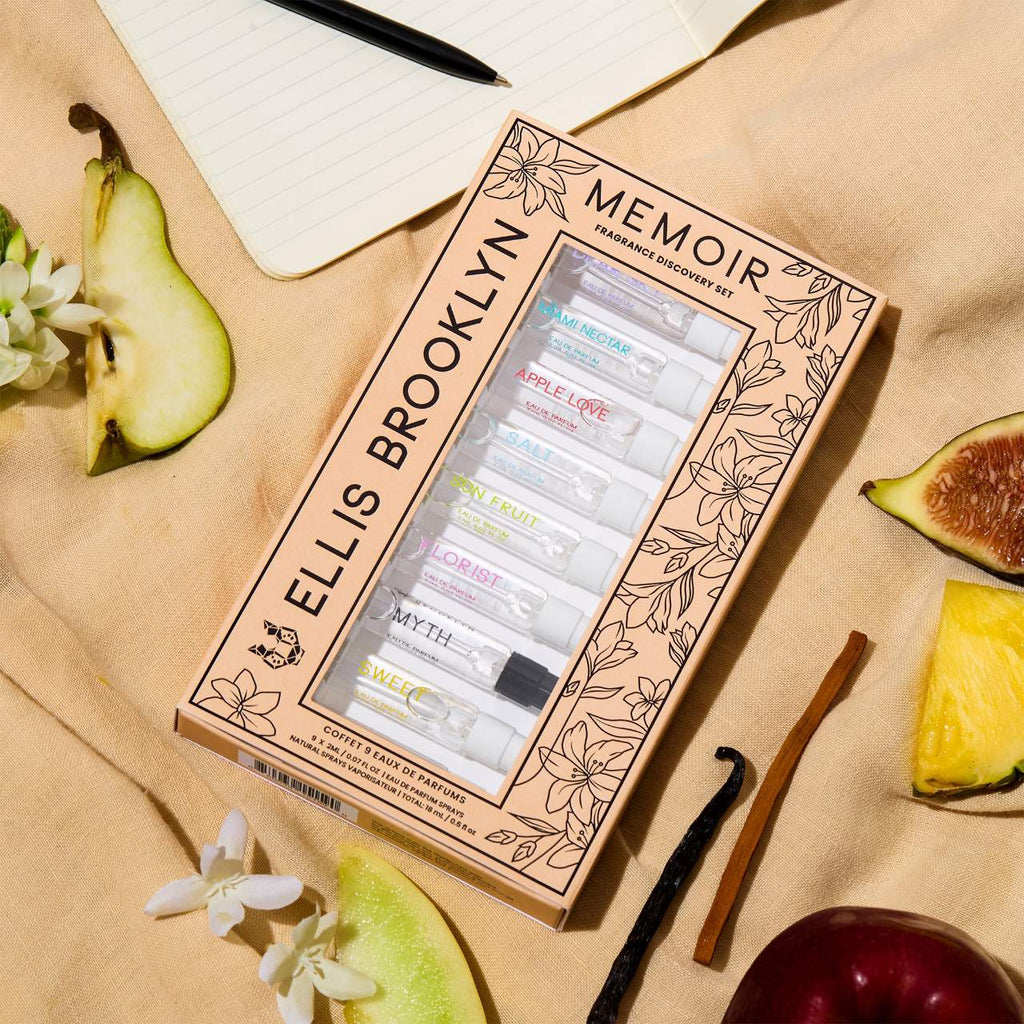 MEMOIR
FRAGRANCE DISCOVERY SET
ELLIS BROOKLYN
EAU DE PARFUM
MIAMI NECTAR
EAU DE PARFUM
APPLE LOVE
EAU DE PARFUM
SALT
EAU DE PARFUM
FRUIT
EAU DE PARFUM
FLORIST
EAU DE PARFUM
MYTH
EAU DE PARFUM
SWEET
EAU DE PARFUM
COFFET 9 EAUX DE PARFUMS
9 X 2ML / 0.07 FL OZ | EAU DE PARFUM SPRAYS
NATURAL SPRAYS VAPORISATEUR | TOTAL: 18 mL / 0.6 fl oz